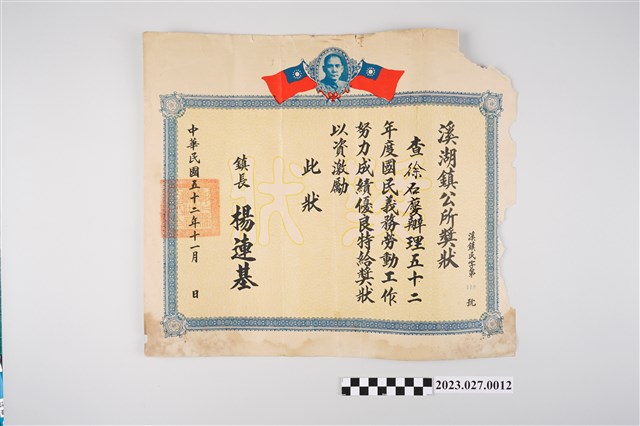 溪湖鎮公所獎狀
溪鎮民字第 號
查徐石慶辦理五十二
年度國民義務勞動工作
努力成績優良特給獎狀
以資激勵
此狀
鎮長 楊連基
中華民國五十二年十一月 日
獎狀
2023.027.0012